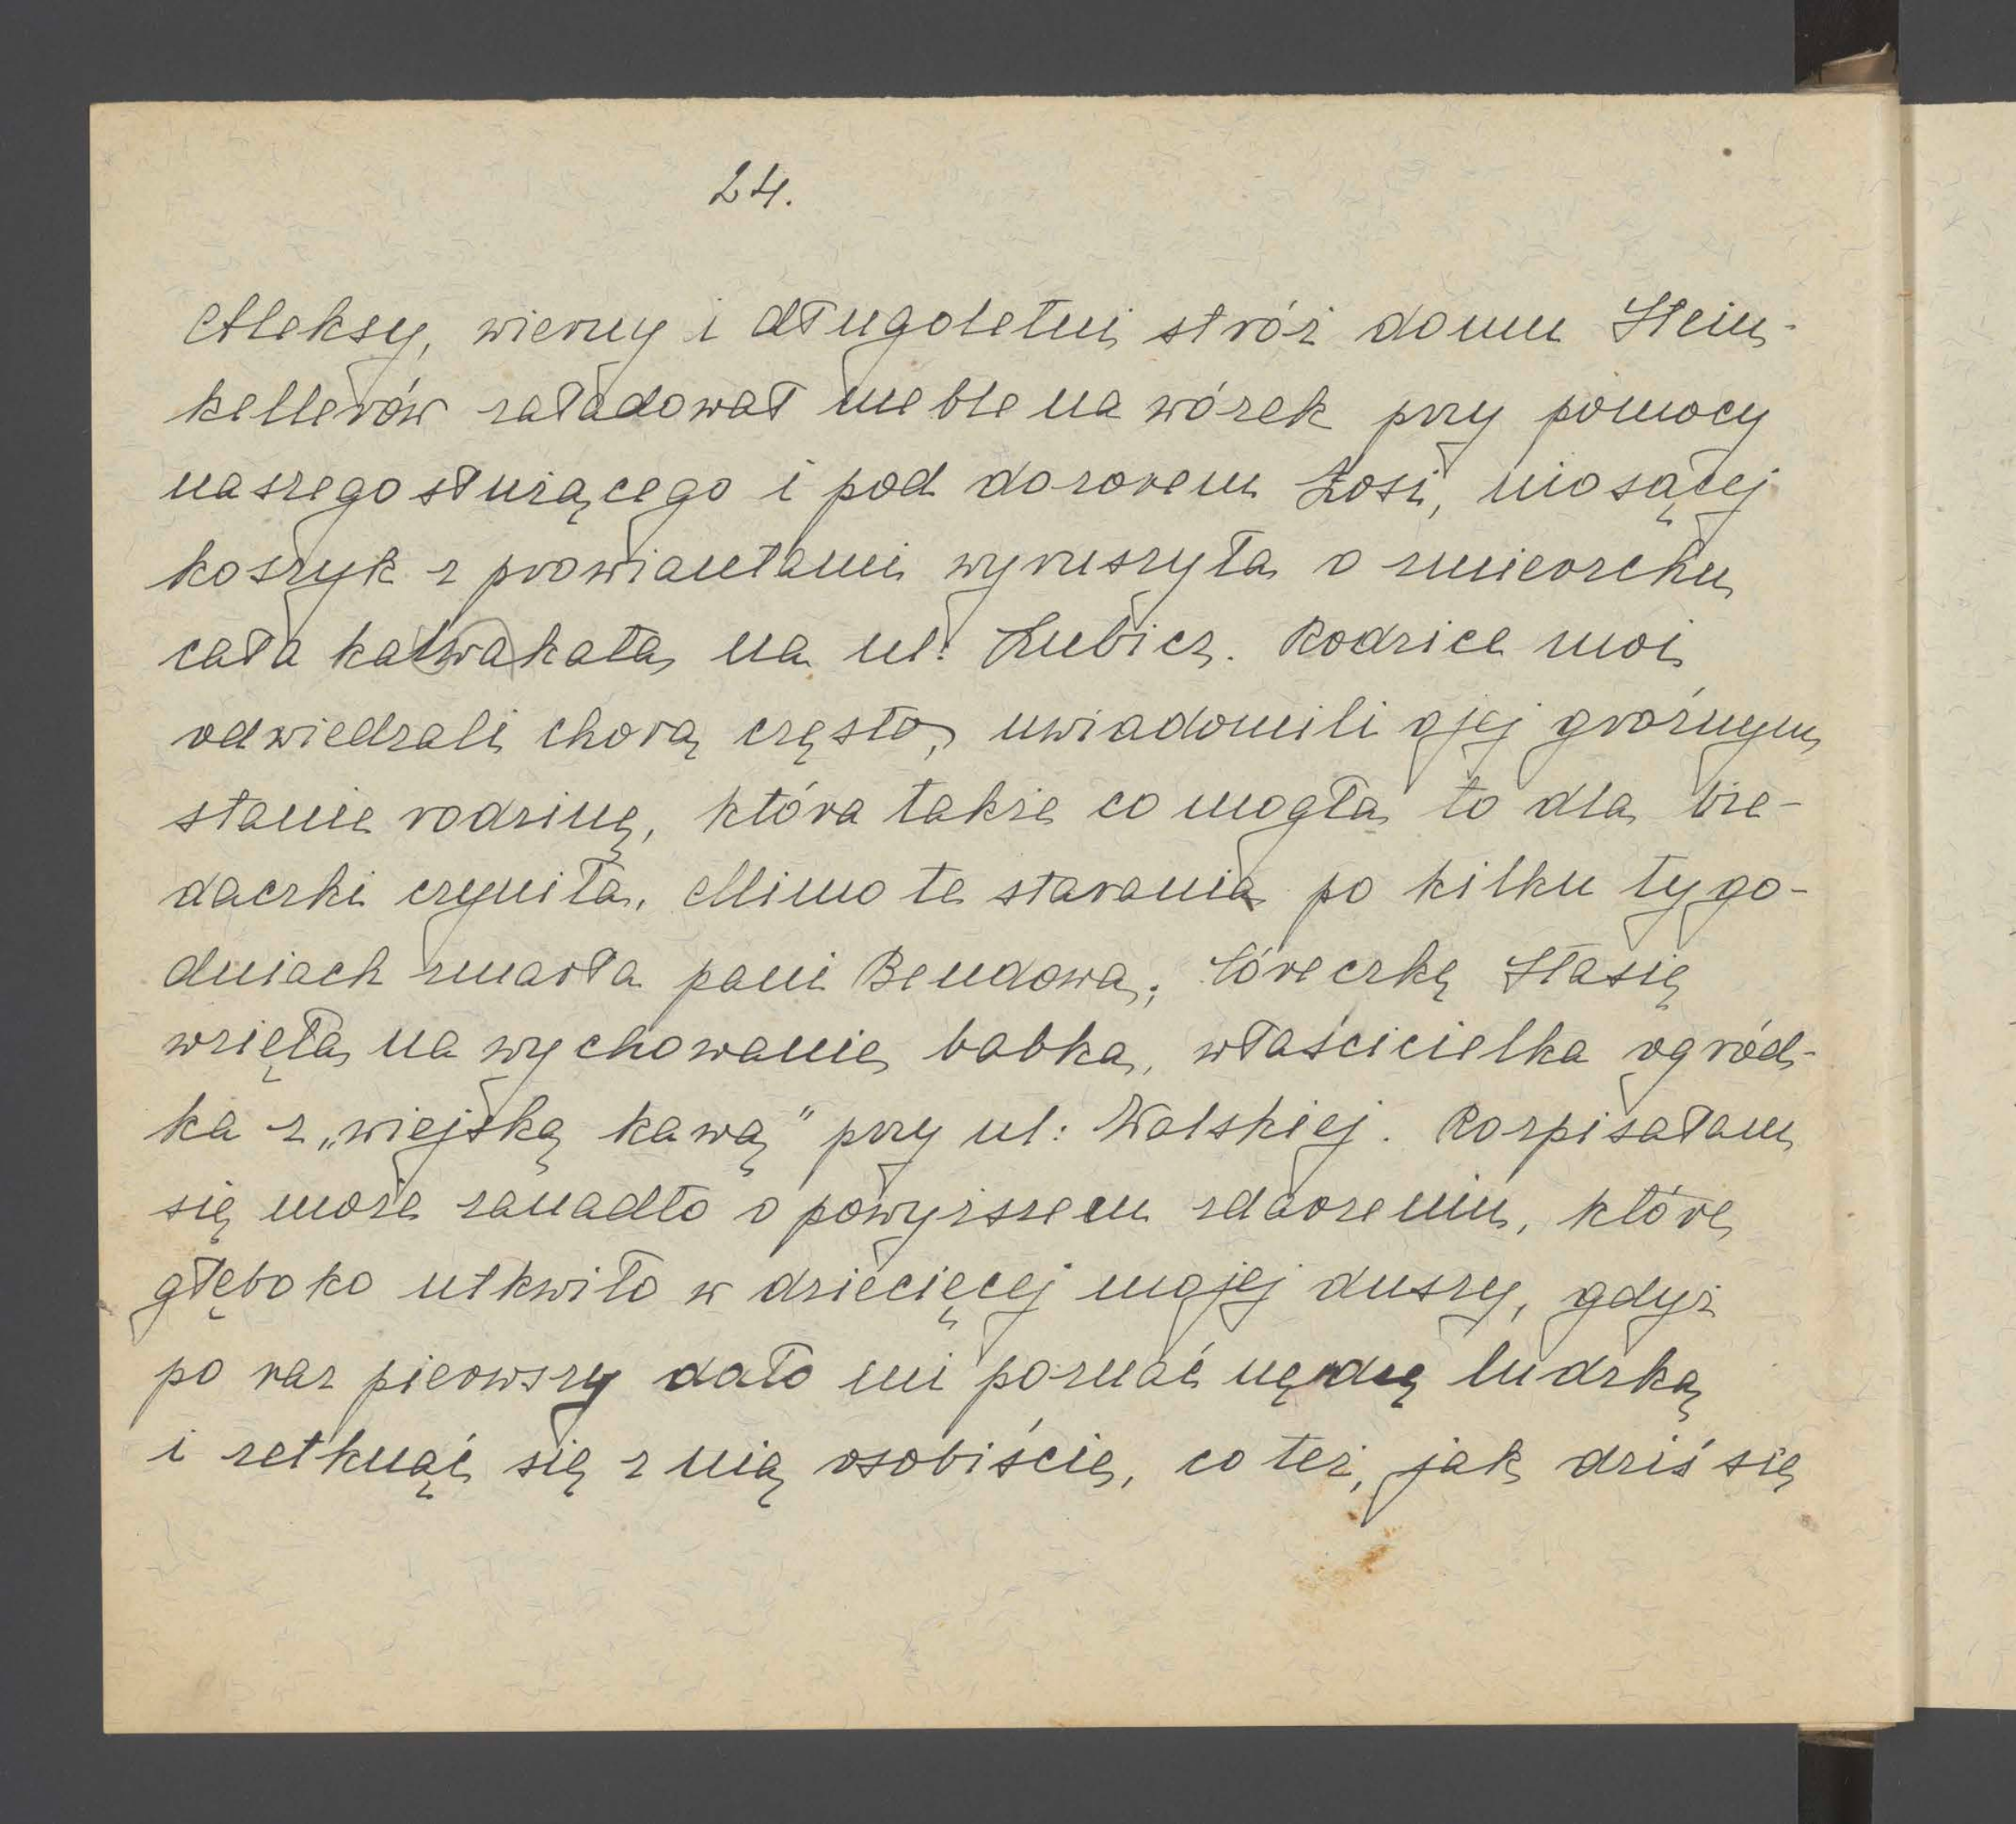 24.
Aleksy, wierny i długoletni stróż domu Stein-
kellerów załadował meble na wózek przy pomocy
naszego służącego i pod dozorem Zosi, niosącej
koszyk z prowiantami wyruszyła o zmierzchu
cała kalwakata na ul: Lubicz. Rodzice moi
odwiedzali chorą często, uwiadomili o jej groźnym
stanie rodzinę, która także co mogła to dla bie-
daczki czyniła. Mimo te starania po kilku tygo-
dniach zmarła pani Bendowa; córeczkę Stasię
wzięła na wychowanie babka, właścicielka ogród-
ka z „wiejską kawą" przy ul: Wolskiej. Rozpisałam
się może zanadto o powyższem zdarzeniu, które
głęboko utkwiło w dziecięcej mojej duszy, gdyż
po raz pierwszy dało mi poznać nędzę ludzką
i zetknąć się z nią osobiście, co też, jak dziś się